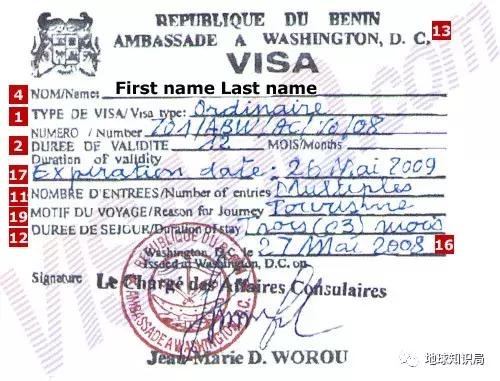 REPUBLIQUE DU BENIN
AMBASSADE A WASHINGTON, D. C. 13
VISA
4 NOM/Names First name Last name
1 TYPE DE VISA/Visa type: Ordinaire
NUMERO / Number 201/ABW/AC/10/08
2 DUREE DE VALIDITE 12 MOIS/Months
Duration of validity
17 Expiration date: 26 Mai 2009
11 NOMBRE D'ENTREES/Number of entries Multiples
19 MOTIF DU VOYAGE/Reason for Journey Tourisme
12 DUREE DE SEJOUR/Duration of stay Trois (03) mois
Washington, D.C. le 27 Mai 2008 16
Issued at Washington, D.C. on
REPUBLIQUE DU BENIN
AMBASSADE A WASHINGTON, D.C.
Signature Le Chargé des Affaires Consulaires
Jean-Marie D. WOROU
地球知识局